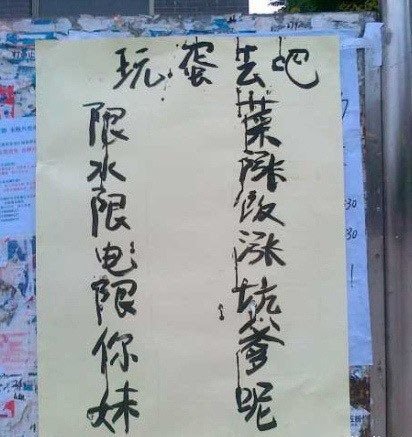 玩蛋去吧
菜涨饭涨坑爹呢
限水限电限你妹